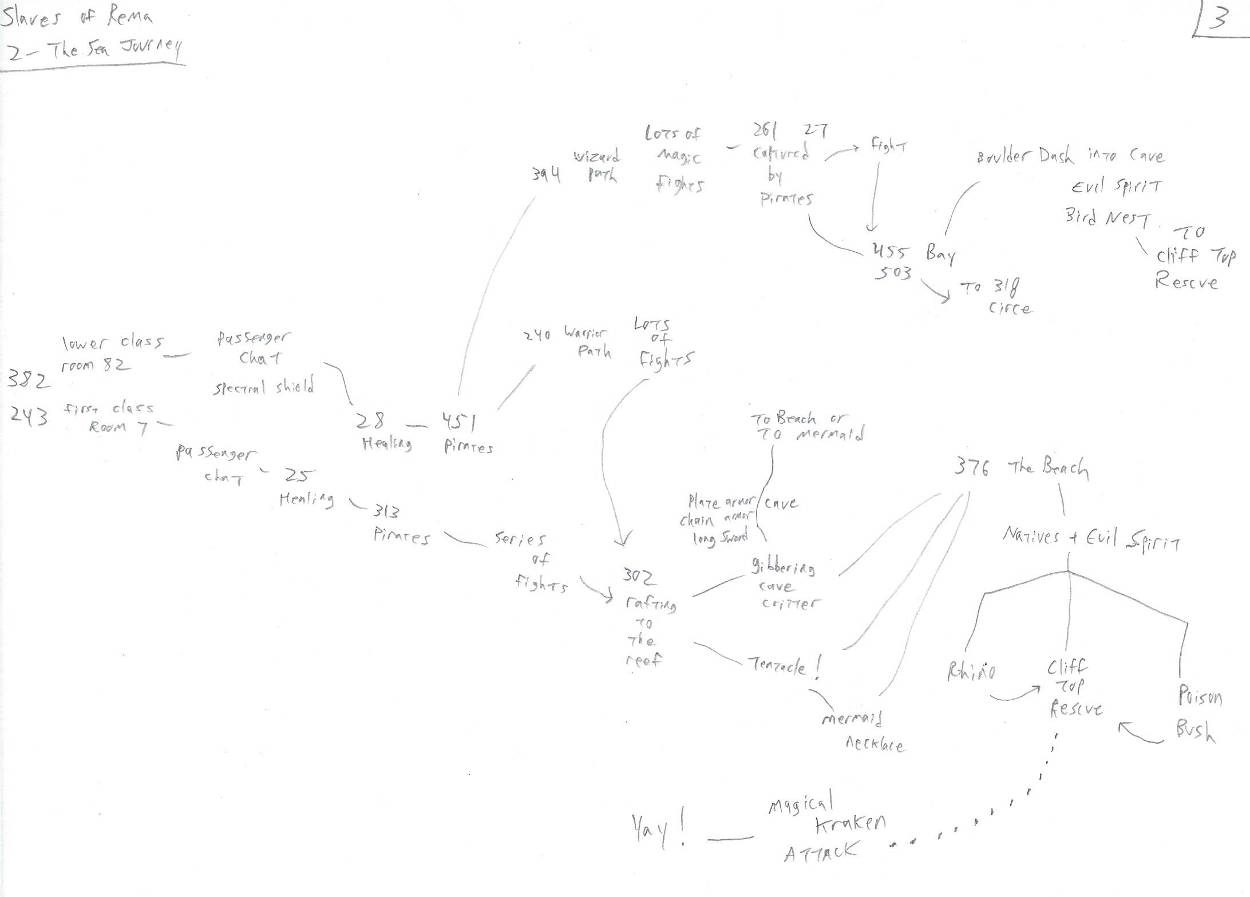 Slaves of Rema
2 - The Sea Journey
3
394
Wizard
Path
Lots of
Magic
Fights
261 27
Captured
by
Pirates
Fight
455 Bay
503
To 318
Circe
Boulder Dash into Cave
Evil Spirit
Bird Nest
To
Cliff Top
Rescue
240 Warrior
Path
Lots
of
Fights
382
lower class
room 82
Passenger
Chat
Spectral Shield
28
Healing
451
Pirates
243
First class
Room 7
Passenger
Chat
25
Healing
313
Pirates
Series
of
Fights
302
rafting
to
the
reef
To Beach or
To Mermaid
Plate armor
chain armor
long Sword
cave
gibbering
cave
critter
Tentacle!
Mermaid
necklace
376 The Beach
Natives + Evil Spirit
Rhino
Cliff
Top
Rescue
Poison
Bush
Magical
Kraken
ATTACK
Yay!